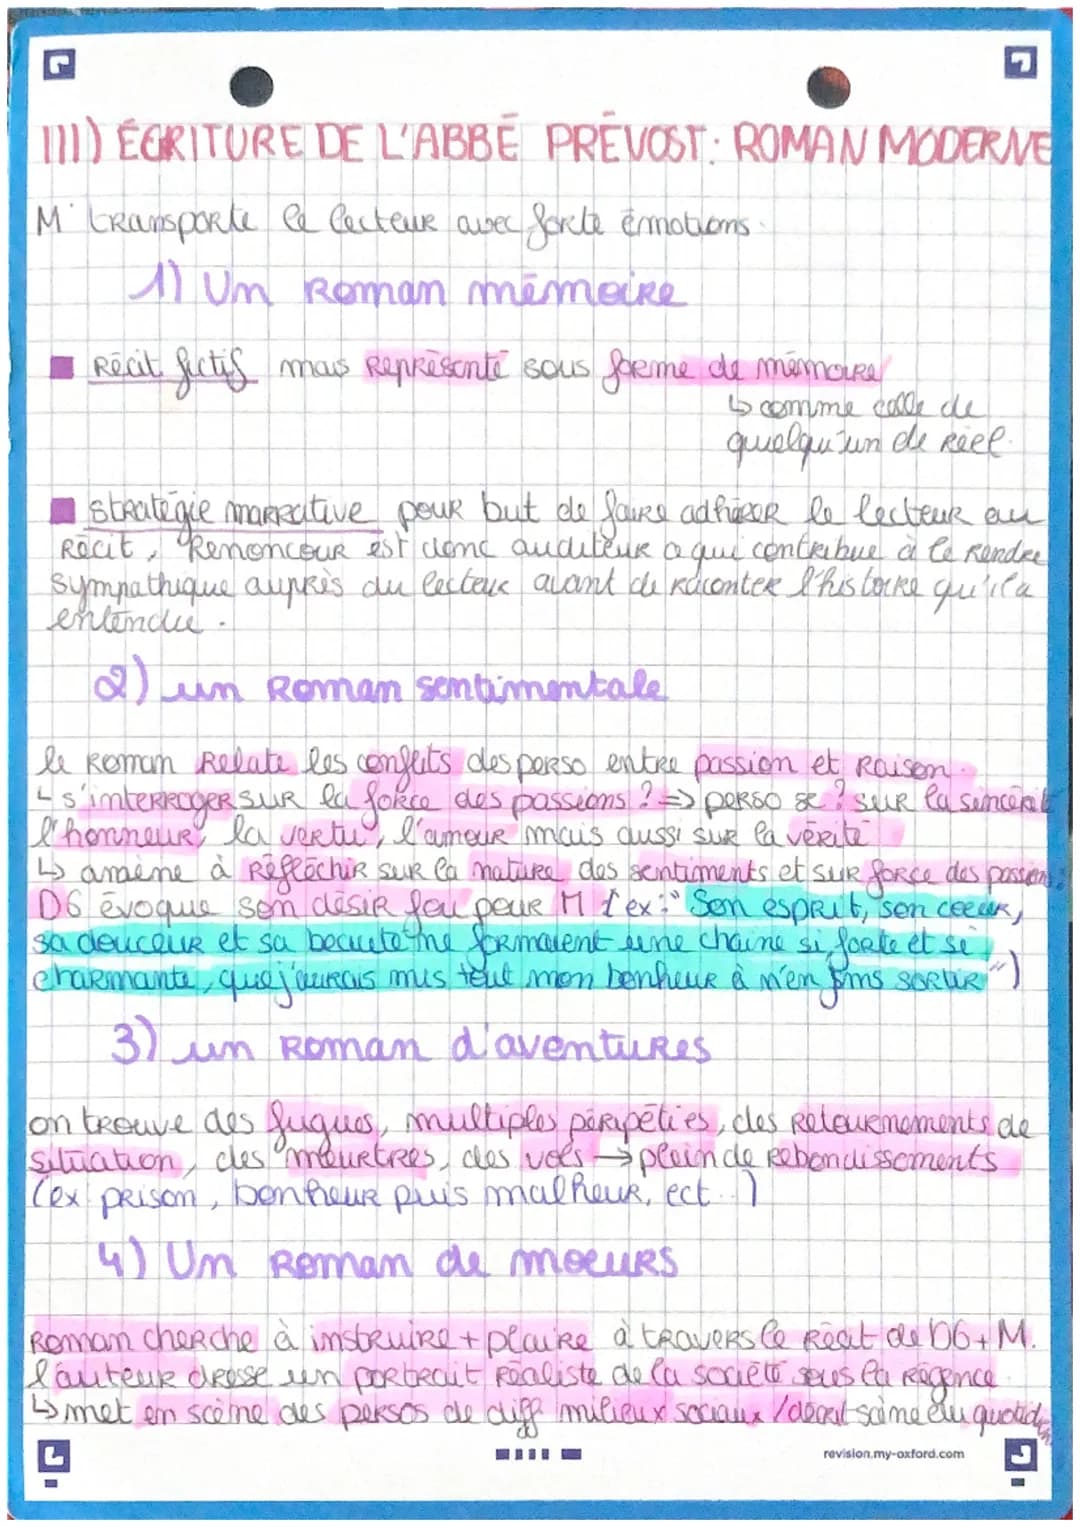 III) ÉCRITURE DE L'ABBÉ PRÉVOST: ROMAN MODERNE
M° transporte le lecteur avec forte émotions.
1) Un Roman mémoire
Récit fictif mais représenté sous forme de mémoire
↳ comme celle de
quelqu'un de réel.
stratégie narrative pour but de faire adhérer le lecteur au
Récit, Renoncour est donc auditeur ce qui contribue à le rendre
sympathique auprès du lecteur avant de raconter l'histoire qu'il a
entendue.
2) un Roman sentimentale
le roman relate les conflits des perso entre passion et raison.
↳ s'interroger sur la force des passions ? => perso se ? sur la sincérité
l'honneur, la vertu, l'amour mais aussi sur la vérité
↳ amène à réfléchir sur la nature des sentiments et sur force des passions
DG évoque son désir fou pour M (ex: "Son esprit, son coeur,
sa douceur et sa beauté me formaient une chaîne si forte et si
charmante, que j'aurais mis tout mon bonheur à n'en sortir")
3) un Roman d'aventures
on trouve des fugues, multiples péripéties, des retournements de
situation, des meurtres, des vols → plein de rebondissements
(ex prison, bonheur puis malheur, ect...)
4) Un Roman de moeurs
Roman cherche à instruire + plaire à travers le récit de DG + M.
l'auteur dresse un portrait réaliste de la société sous la Régence.
↳ met en scène des persos de diff milieux sociaux / décrit scène du quotidien
revision.my-oxford.com